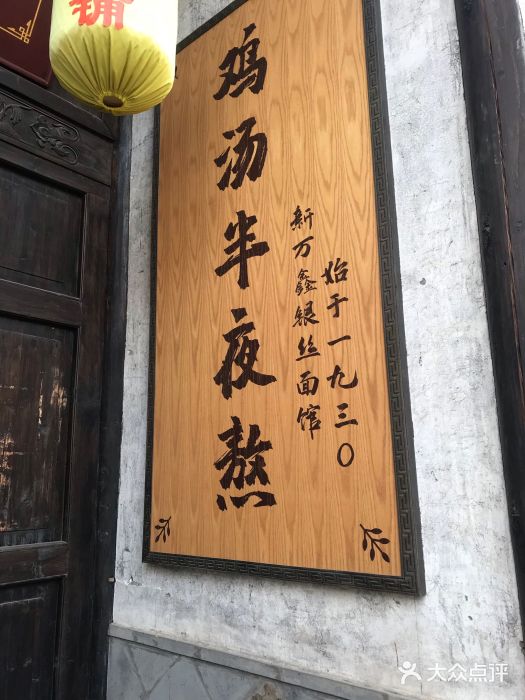 铺
鸡汤半夜熬
始于一九三〇
新万鑫银丝面馆
大众点评